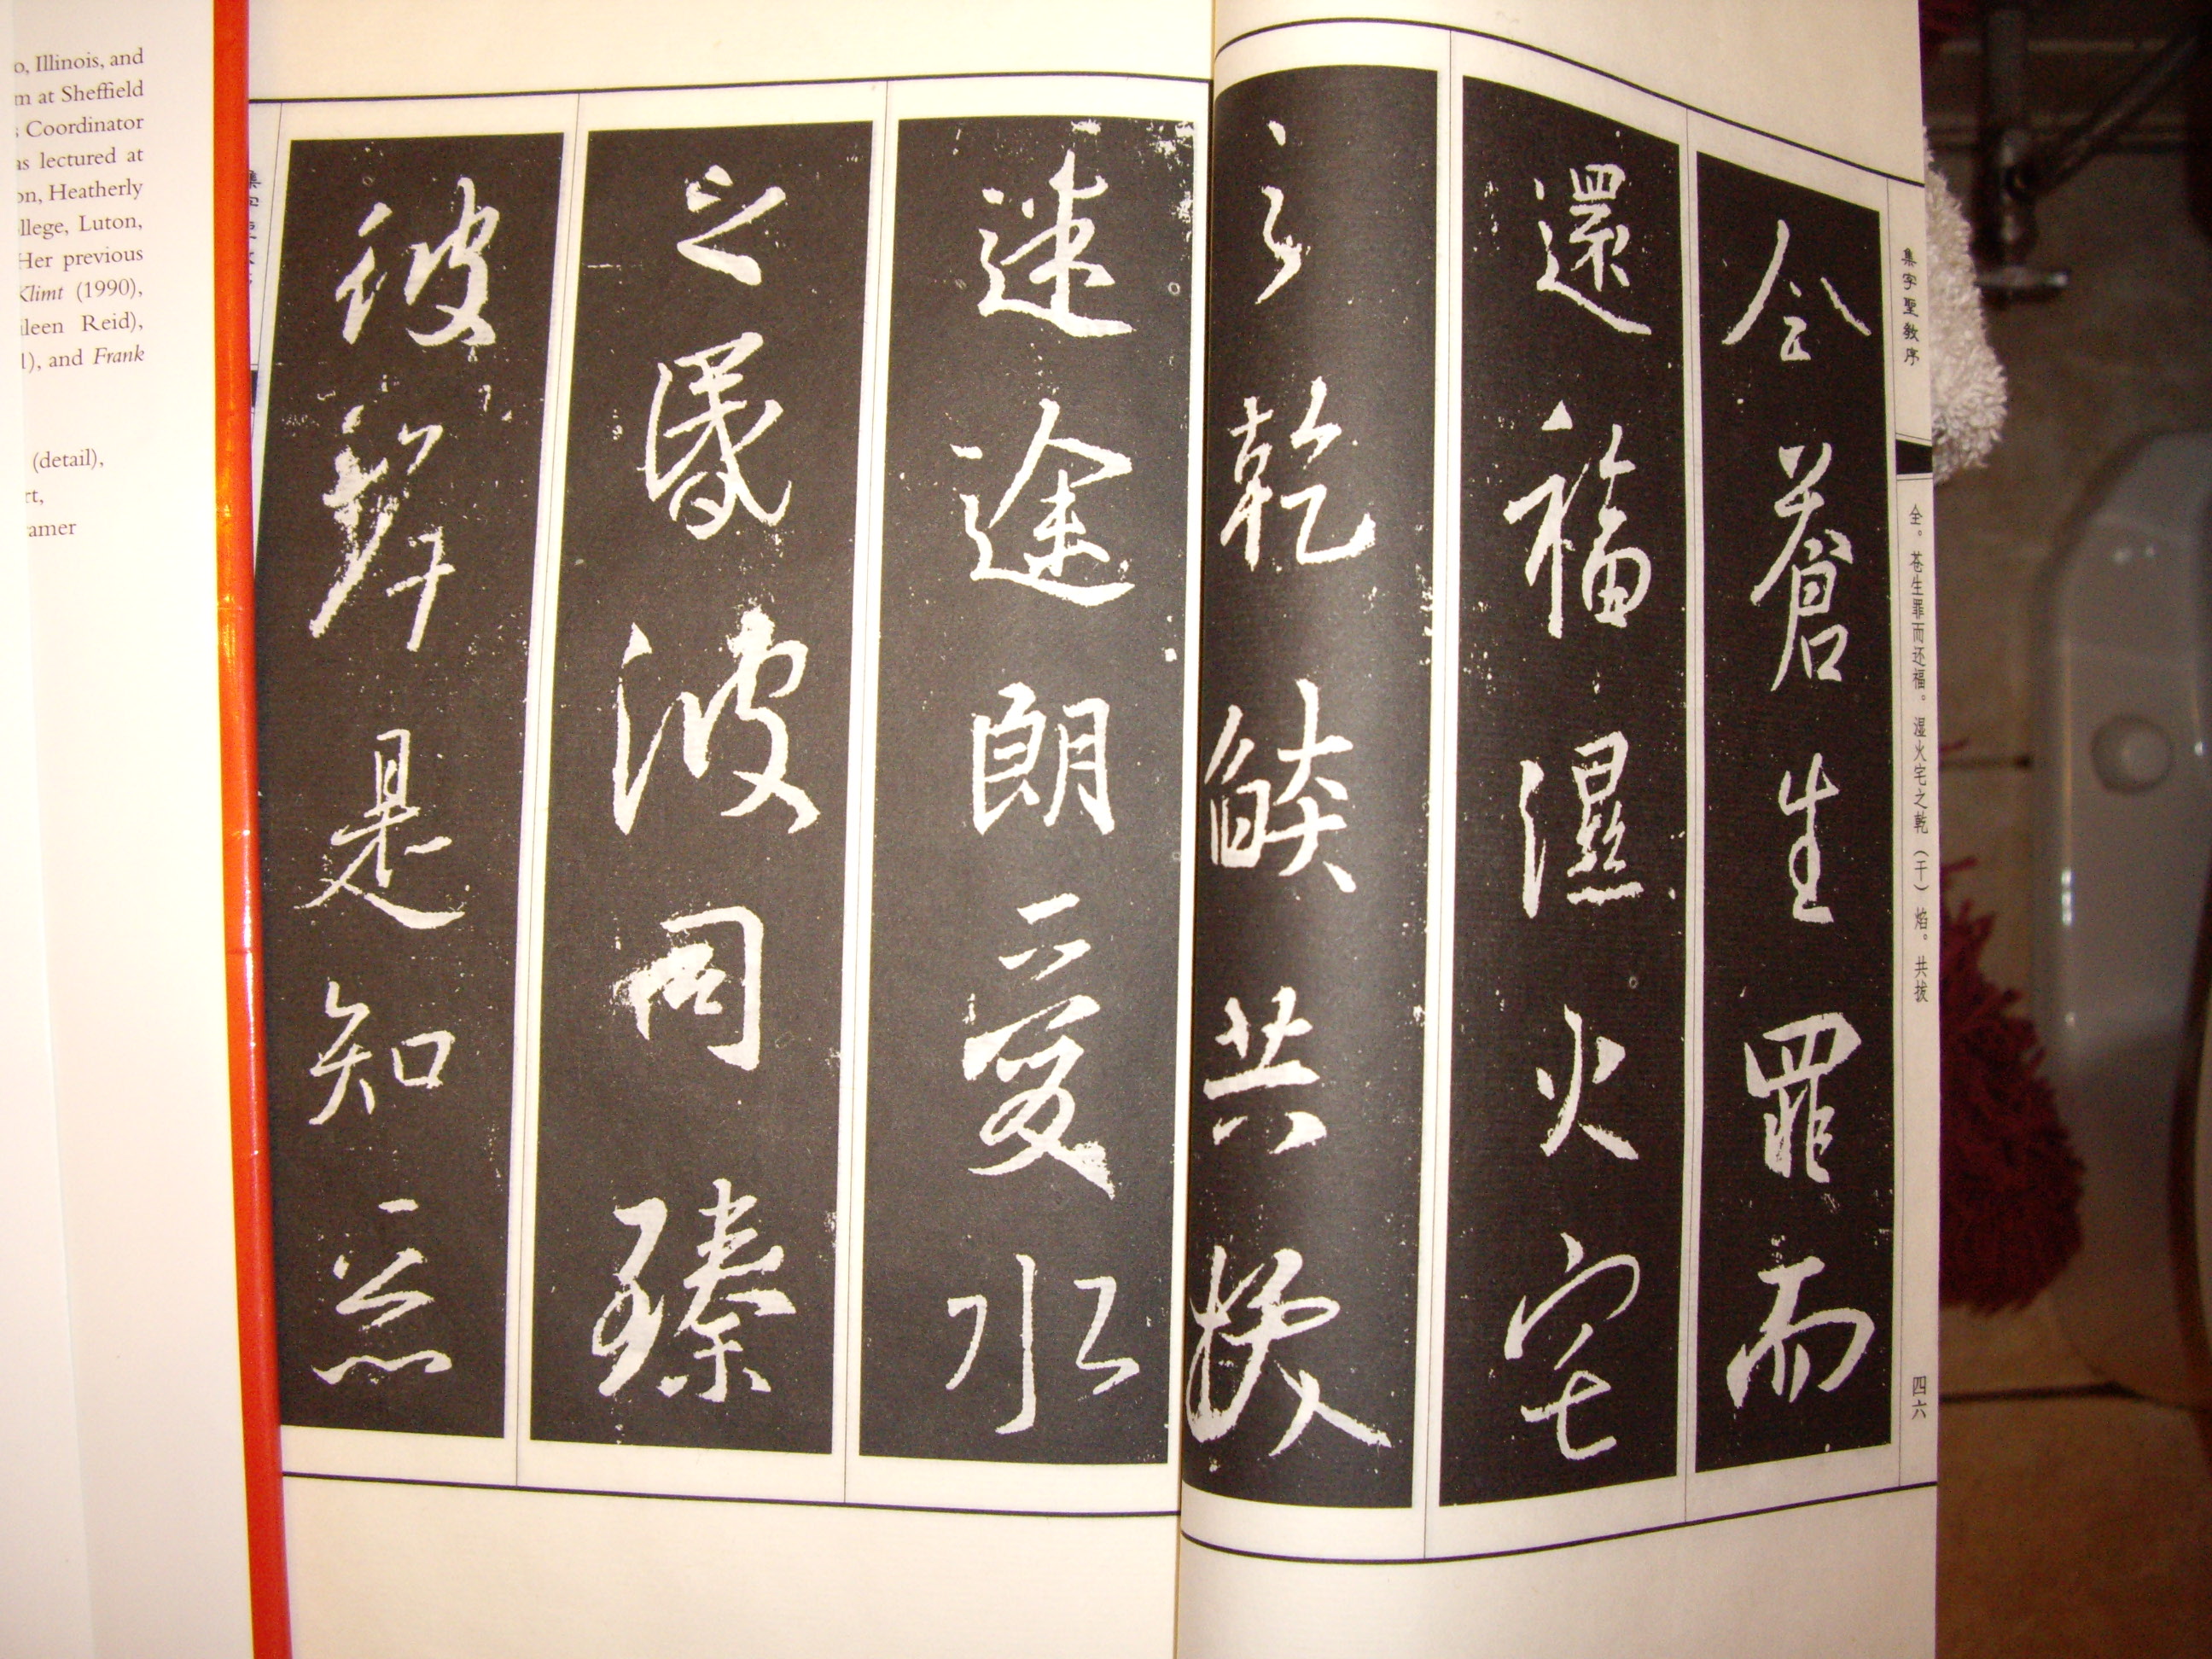 o, Illinois, and
m at Sheffield
s Coordinator
as lectured at
on, Heatherly
llege, Luton,
Her previous
Klimt (1990),
ileen Reid),
1), and Frank
(detail),
rt,
amer
集字聖教序
全。苍生罪而还福。湿火宅之乾（干）焰。共拔
四六
令蒼生罪而
還福濕火宅
之乾燄共拔
迷途朗愛水
之昏波同臻
彼岸是知惡